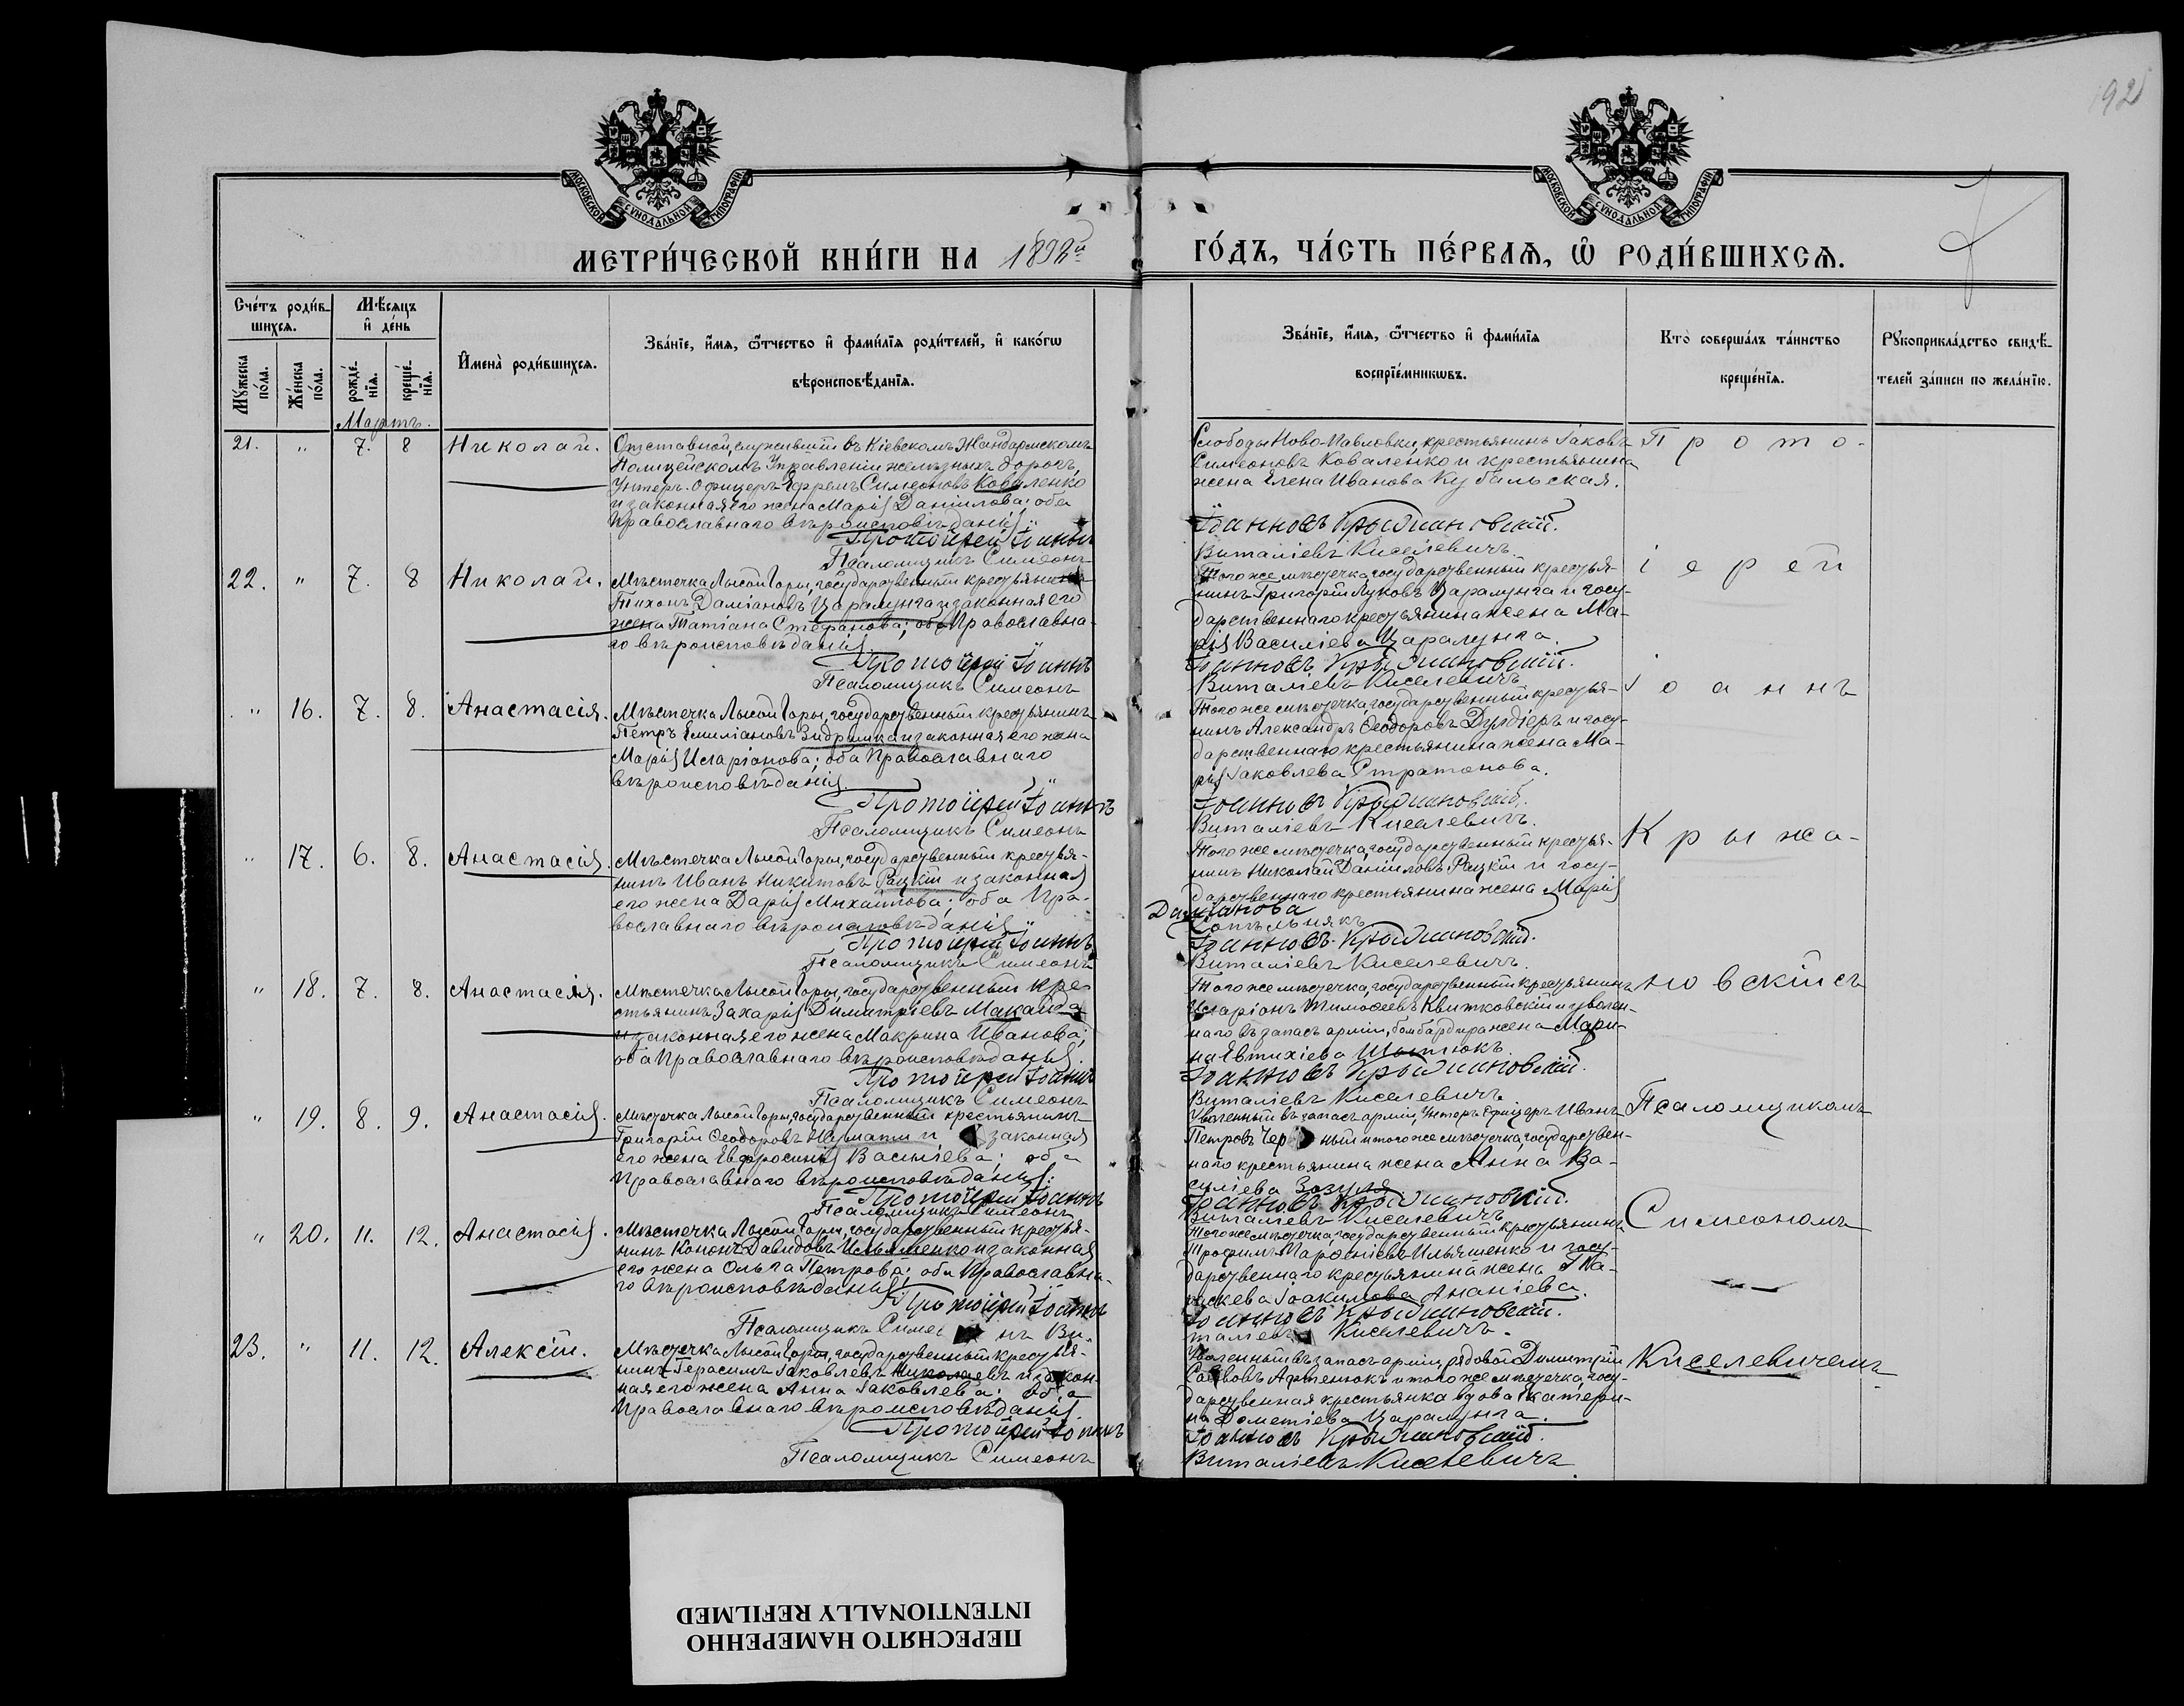 192
МОСКОВСКОЙ СУНОДАЛЬНОЙ ТИПОГРАФІИ
МОСКОВСКОЙ СУНОДАЛЬНОЙ ТИПОГРАФІИ
МЕТРИ́ЧЕСКОЙ КНИ́ГИ НА
ГО́ДЪ, ЧА́СТЬ ПЕ́РВАѦ, Ѡ҆ РОДИ́ВШИХСѦ.
Сче́тъ роди́в-
шихсѧ.
Мѣ́сѧцъ
и҆ де́нь
Мꙋ́жеска по́ла.
Же́нска по́ла.
рожде́-
нїѧ.
креще́-
нїѧ.
И҆мена̀ роди́вшихсѧ.
Зва́нїе, и҆́мѧ, ѻ҆́тчество и҆ фами́лїѧ роди́телей, и҆ како́гѡ
вѣроисповѣ́данїѧ.
Зва́нїе, и҆́мѧ, ѻ҆́тчество и҆ фами́лїѧ
воспрїе́мникѡвъ.
Кто̀ соверша́лъ та́инство
креще́нїѧ.
Рꙋкоприкла́дство свидѣ́-
телей за́писи по жела́нїю.
Мартъ.
21. " 7. 8 Николай.
Отставной, служившій въ Кіевскомъ Жандармскомъ
Полицейскомъ Управленіи желѣзныхъ дорогъ,
Унтеръ-офицеръ Ефремъ Симеоновъ Коваленко
и законная его жена Марія Даніилова; оба
Православнаго вѣроисповѣданія.
Протоіерей Іоаннъ
Псаломщикъ Симеонъ
Слободы Ново-Павловки, крестьянинъ Іаковъ
Симеоновъ Коваленко и крестьянина
жена Елена Иванова Кубальская.
Іоанновъ Крыжановскій.
Виталіевъ Киселевичъ.
Прото-
22. " 7. 8 Николай.
Мѣстечка Лысой Горы, государственный крестьянинъ
Тихонъ Даміановъ Царалунга и законная его
жена Татіана Стефанова; оба Православна-
го вѣроисповѣданія.
Протоіерей Іоаннъ
Псаломщикъ Симеонъ
Того же мѣстечка, государственный крестья-
нинъ Григорій Луковъ Царалунга и госу-
дарственнаго крестьянина жена Ма-
рія Василіева Царалунга.
Іоанновъ Крыжановскій.
Виталіевъ Киселевичъ
іерей
" 16. 7. 8. Анастасія.
Мѣстечка Лысой Горы, государственный крестьянинъ
Петръ Емиліановъ и законная его жена
Марія Иларіонова; оба Православнаго
вѣроисповѣданія.
Протоіерей Іоаннъ
Псаломщикъ Симеонъ
Того же мѣстечка, государственный крестья-
нинъ Александръ Ѳеодоровъ Дулдіеръ и госу-
дарственнаго крестьянина жена Ма-
рія Іаковлева Стратонова.
Іоанновъ Крыжановскій.
Виталіевъ Киселевичъ.
Іоаннъ
" 17. 6. 8. Анастасія.
Мѣстечка Лысой Горы, государственный крестья-
нинъ Иванъ Никитовъ Рацкій и законная
его жена Дарія Михаилова; оба Пра-
вославнаго вѣроисповѣданія.
Протоіерей Іоаннъ
Псаломщикъ Симеонъ
Того же мѣстечка, государственный крестья-
нинъ Николай Даніиловъ Рацкій и госу-
дарственнаго крестьянина жена Марія
Даміанова
Іоанновъ Крыжановскій.
Виталіевъ Киселевичъ.
Крыжа-
" 18. 7. 8. Анастасія.
Мѣстечка Лысой Горы, государственный кре-
стьянинъ Захарія Димитріевъ Макайда
и законная его жена Макрина Иванова;
оба Православнаго вѣроисповѣданія.
Протоіерей Іоаннъ
Псаломщикъ Симеонъ
Того же мѣстечка, государственный крестьянинъ
Иларіонъ Тимоѳеевъ Квитковскій и уволен-
наго въ запасъ арміи, бомбардира жена Мари-
на Евтихіева
Іоанновъ Крыжановскій.
Виталіевъ Киселевичъ.
новскій съ
" 19. 8. 9. Анастасія.
Мѣстечка Лысой Горы, государственный крестьянинъ
Григорій Ѳеодоровъ и законная
его жена Евфросинія Василіева; оба
Православнаго вѣроисповѣданія.
Протоіерей Іоаннъ
Псаломщикъ Симеонъ
Уволенный въ запасъ арміи, Унтеръ офицеръ Иванъ
Петровъ и того же мѣстечка, государствен-
наго крестьянина жена Анна Ва-
силіева Зозуля.
Іоанновъ Крыжановскій.
Виталіевъ Киселевичъ
Псаломщикомъ
" 20. 11. 12. Анастасія.
Мѣстечка Лысой Горы, государственный крестья-
нинъ Кононъ Давидовъ Ильяшенко и законная
его жена Ольга Петрова; оба Православна-
го вѣроисповѣданія.
Протоіерей Іоаннъ
Псаломщикъ Симеонъ Ви-
Того же мѣстечка, государственный крестьянинъ
Трофимъ Парѳеніевъ Ильяшенко и госу-
дарственнаго крестьянина жена Па-
раскева Іоакимова Ананіева.
Іоанновъ Крыжановскій.
таліевъ Киселевичъ.
Симеономъ
23. " 11. 12. Алексій.
Мѣстечка Лысой Горы, государственный крестья-
нинъ Герасимъ Іаковлевъ Николаевъ и закон-
ная его жена Анна Іаковлева; оба
Православнаго вѣроисповѣданія
Протоіерей Іоаннъ
Псаломщикъ Симеонъ
Уволенный въ запасъ арміи, рядовой Димитрій
Саввовъ Артенюкъ и того же мѣстечка, госу-
дарственная крестьянка вдова Екатери-
на Дометіева Царалунга.
Іоанновъ Крыжановскій.
Виталіевъ Киселевичъ
Киселевичемъ
ПЕРЕСНЯТО НАМЕРЕННО
INTENTIONALLY REFILMED